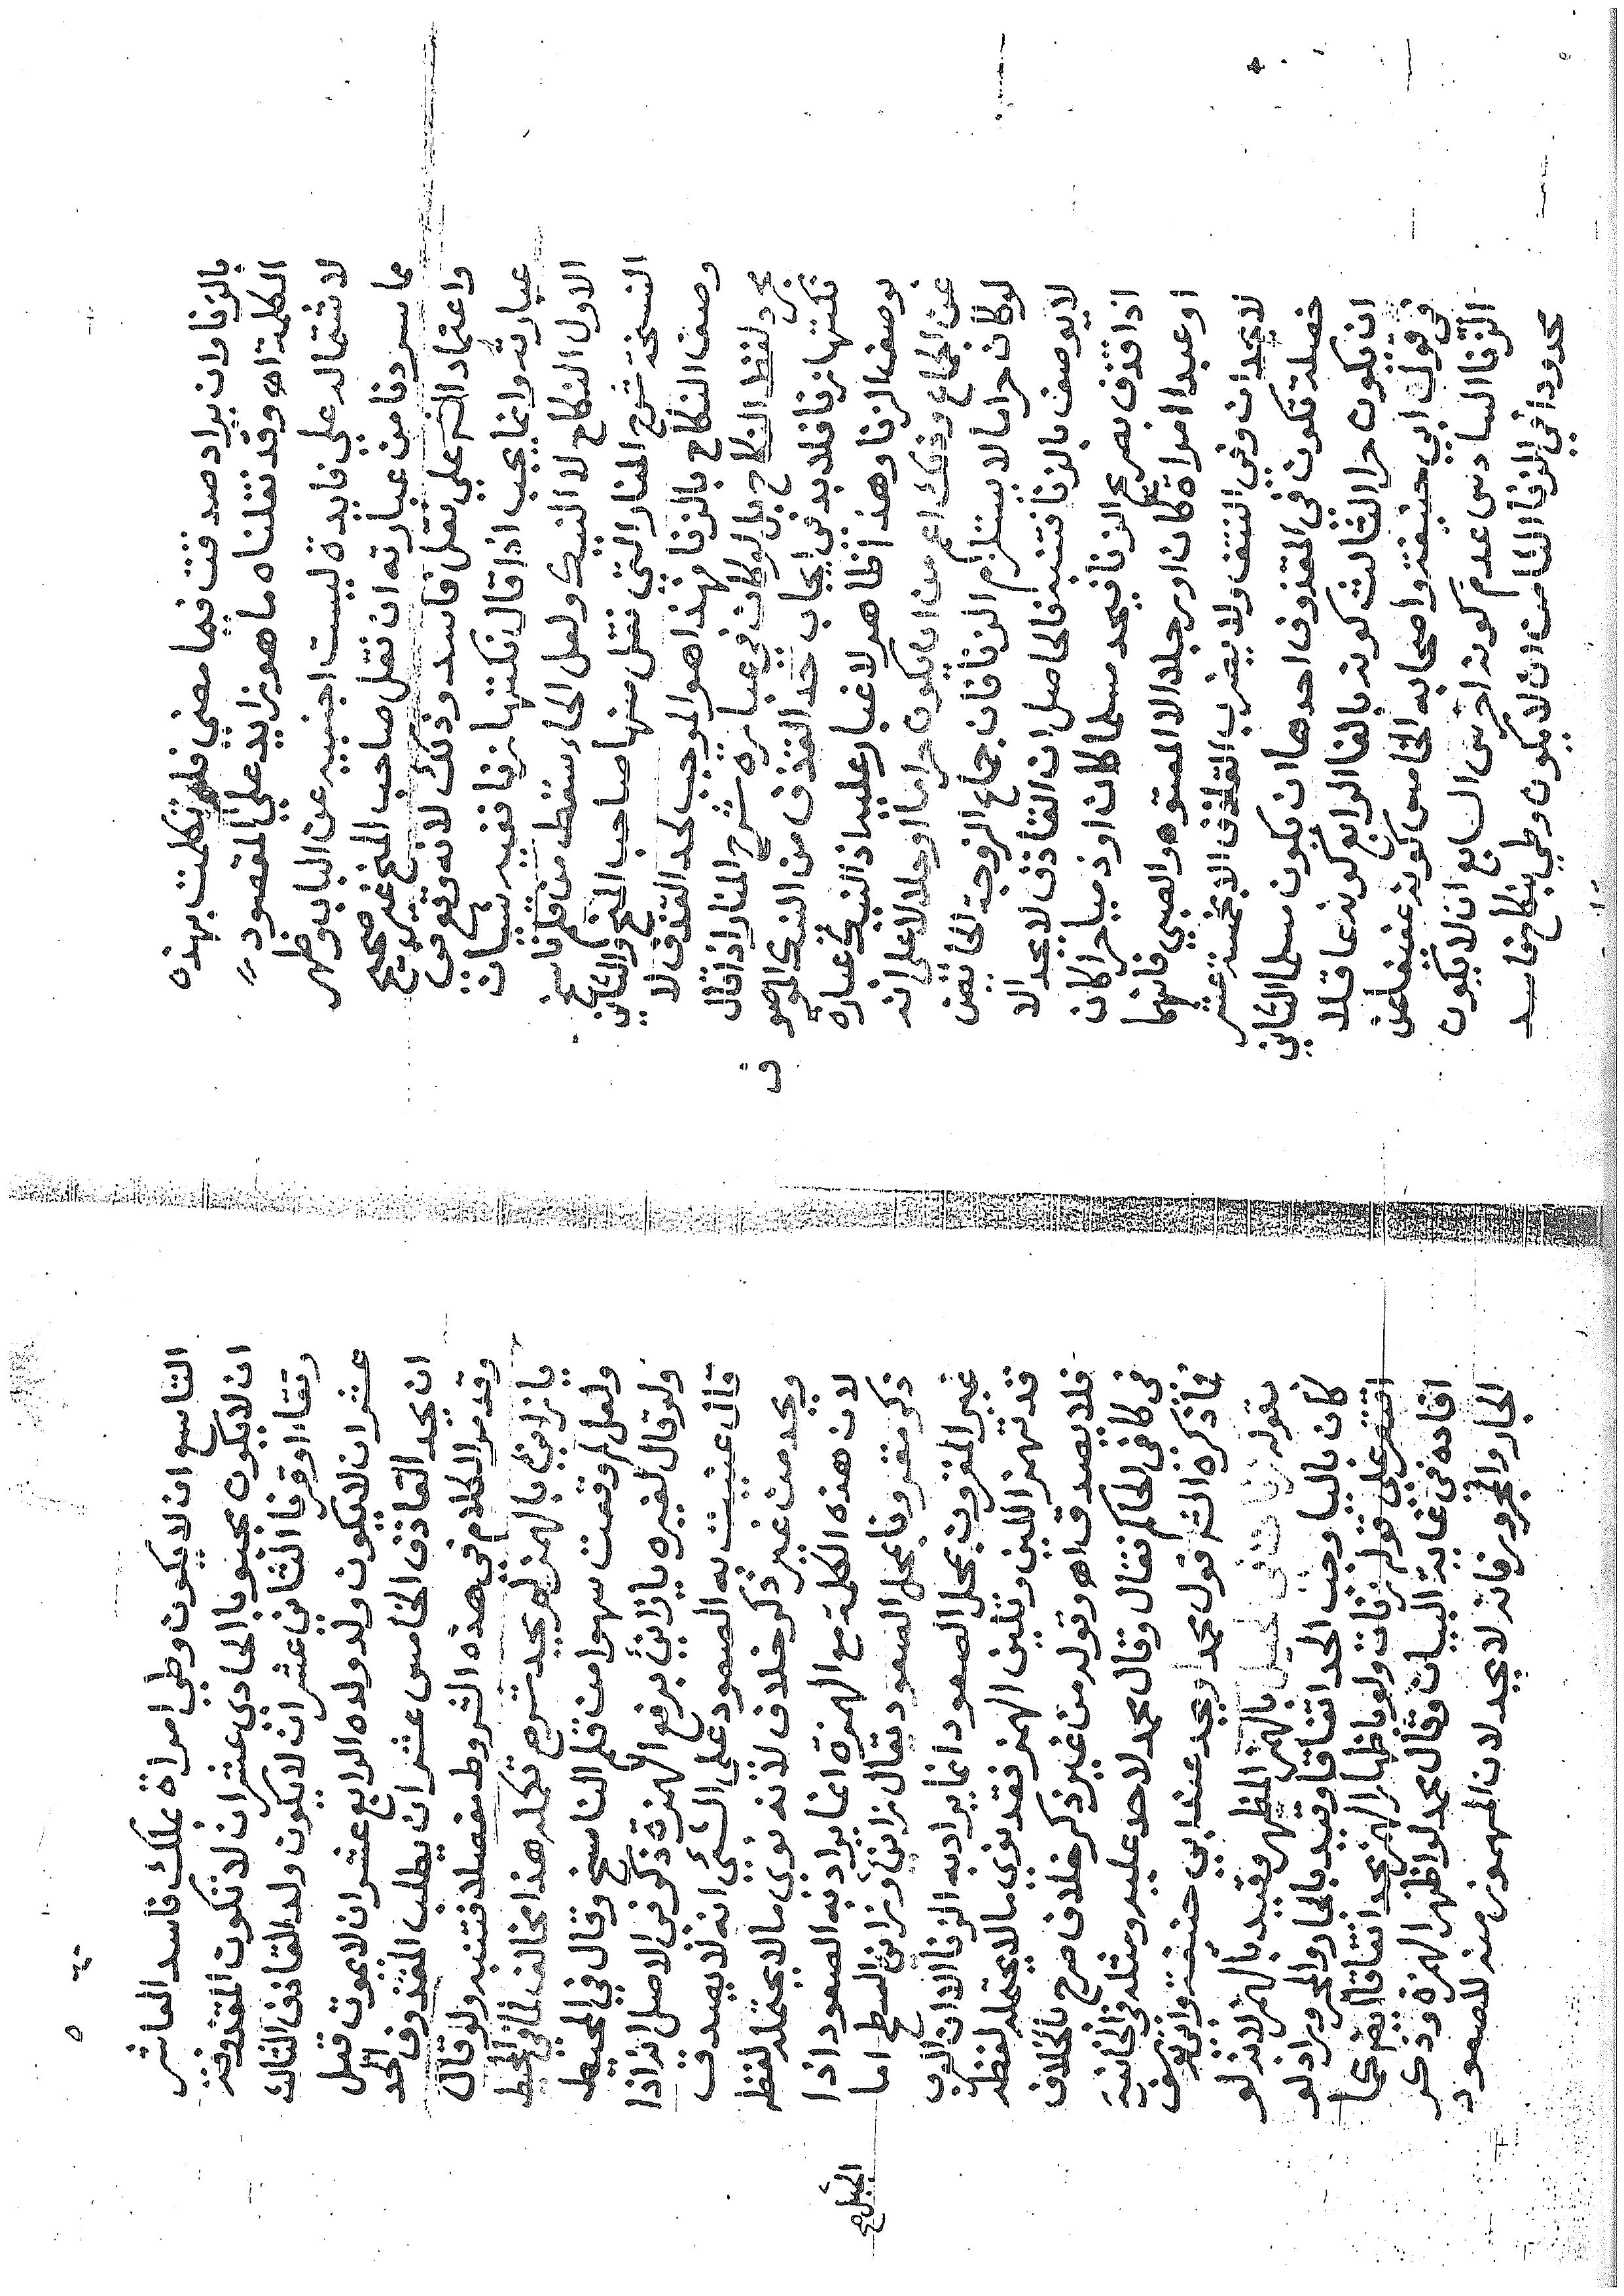 بالزنا وان يراد صدقت فيما مضي فلو تكلمت بهذه
الكلمة اه وقد نقلناه ما هو زايد علي المقصود
لاشتماله علي فايدة ليست اجنبيه عن الباب وظهر
مما سردنا من عبارته ان نقل صاحب المنح غير صحيح
واعتماد الشر علي نقل فاسد وذلك لانه وقع في
عبارته وانما يجب اذا قال نكتها بزنا فغير بيان
الاول النكاح لا النيك ولعل الحا سقط من قلم ناسخ
النسخه شرح المنار التي نقل منها صاحب المنح والثاني
وصف النكاح بالزنا فهذا هو الموجب لحد القذف لا
مجرد لفظ النكاح بل لو كان في عبارة شرح المنار اذا قال
نكتها بزنا فلا بد في ايجاب حد القذف من النيك الموصوف
بوصف الزنا وهذا ظاهر لا غبار عليه اذ النيك عبارة
عن الجماع وذلك اعم من ان يكون حراما او حلالا علي انه
لو كان حراما لا يستلزم الزنا فان جماع الزوجة الحايض
لا يوصف بالزنا فتنبه فالحاصل ان القاذف لا يحد الا
اذا قذف بصريح الزنا فيحد مسلما كان او ذميا حرا كان
او عبدا امراة كان او رجلا الا المعتوه والصبي فانهما
لا يحدان وفي النتف ولا يضرب القاذف الا بخمسة عشر
خصلة تكون في المقذوف احدها ان يكون مسلما الثاني
ان يكون حرا الثالث كونه بالغا الرابع كونه عاقلا
في قول ابي حنيفة واصحابه الخامس كونه عفيفا عن
الزنا السادس عدم كونه اخرس السابع ان لا يكون
محدودا في الزنا الثامن ان لا يكون وطي بنكاح فاسد
التاسع ان لا يكون وطي امراة بملك فاسد العاشر
ان لا يكون مجبوبا الحادي عشر ان لا تكون المقذوفة
رتقا او قرنا الثاني عشر ان لا يكون ولد القاذف الثالث
عشر ان لا يكون ولد ولده الرابع عشر ان لا يموت قبل
ان يحد القاذف الخامس عشر ان يطلب المقذوف الحد
وقد مر الكلام في هذه الشروط مفصلا فتنبه ولو قال
يا زاني بالهمز لم يحد شرح تكمله هذا مخالف لما في المحيط
ولعل لم وقعت سهوا من قلم الناسخ وقال في المحيط
ولو قال لغيره يا زانئ برفع الهمزة ذكر في الاصل انه اذا
قال عنيت به الصعود علي الشئ انه لا يصدق
ويحد من غير ذكر خلاف لانه نوي ما لا يحتمله لفظه
لان هذه الكلمة مع الهمزة انما يراد به الصعود اذا
ذكر مقرونا بمحل الصعود يقال زاني وزانئ السطح اما
الجبل صح
غير المقرون بمحل الصعود انما يراد به الزنا الا ان العرب
قد تهمز اللين وتلين الهمز فقد نوي ما لا يحتمله لفظه
فلا يصدق اه وقوله من غير ذكر خلاف صرح بالخلاف
في كافي الحاكم فقال وقال محمد لا حد عليه ومثله في الخانية
فما ذكره الشر قول محمد ويحد عند ابي حنيفة وابي يوسف
بقوله زنات في الجبل بالهمز المظهر وقيد بالهمز لانه لو
كان باليا وجب الحد اتفاقا وقيد بالجار والمجرور اذ لو
اقتصر علي قوله زنات ولو باظهار الهمز يحد اتفاقا انتهي كما
افاده في غاية البيان وقال محمد لو اظهر الهمزة وذكر
الجار والمجرور فانه لا يحد لان المهموز منه للصعود